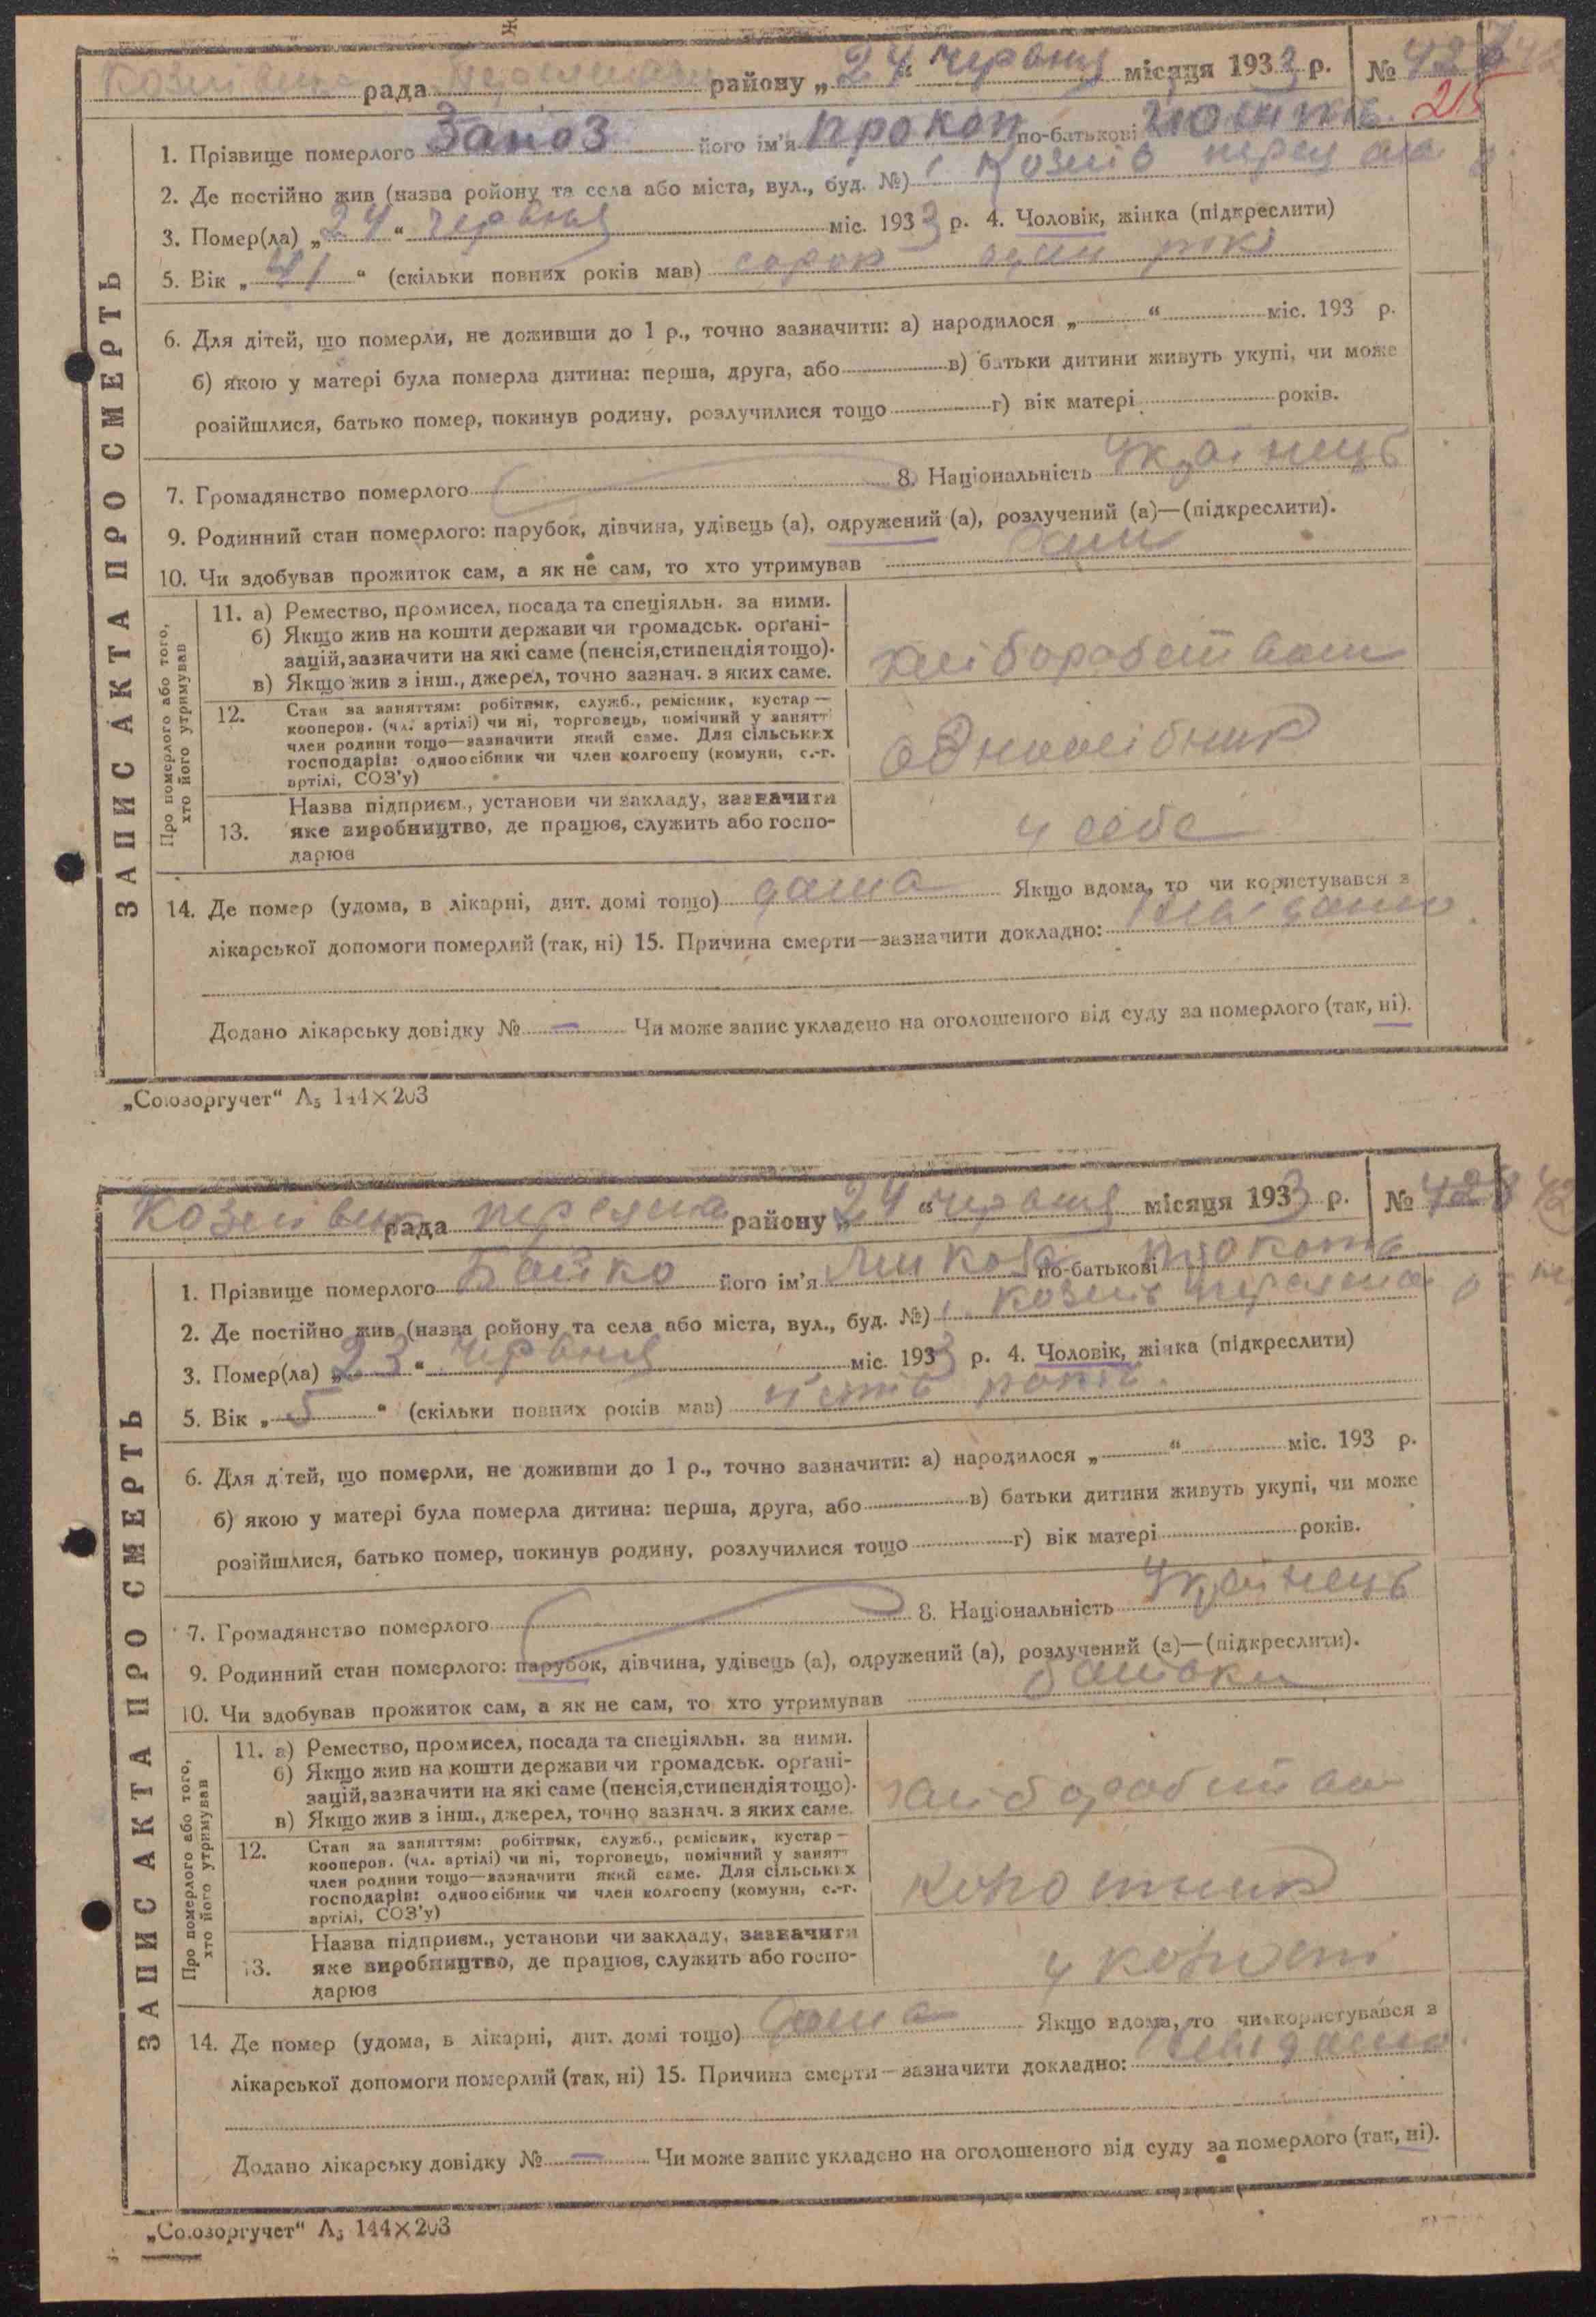 рада району „24“ червня місяця 1933 р. №
215
ЗАПИС АКТА ПРО СМЕРТЬ
1. Прізвище померлого Заноз його ім'я Прокоп по-батькові
2. Де постійно жив (назва ройону та села або міста, вул., буд. №) с. Козлів
3. Помер(ла) „24“ червня міс. 1933 р. 4. Чоловік, жінка (підкреслити)
5. Вік „41“ (скільки повних років мав) сорок один рік
6. Для дітей, що померли, не доживши до 1 р., точно зазначити: а) народилося „ “ міс. 193 р.
б) якою у матері була померла дитина: перша, друга, або в) батьки дитини живуть укупі, чи може
розійшлися, батько помер, покинув родину, розлучилися тощо г) вік матері років.
7. Громадянство померлого 8. Національність Українець
9. Родинний стан померлого: парубок, дівчина, удівець (а), одружений (а), розлучений (а)—(підкреслити).
10. Чи здобував прожиток сам, а як не сам, то хто утримував сам
Про померлого або того, хто його утримував
11. а) Ремество, промисел, посада та спеціяльн. за ними.
б) Якщо жив на кошти держави чи громадськ. орґані-
зацій, зазначити на які саме (пенсія, стипендія тощо).
в) Якщо жив з інш., джерел, точно зазнач. з яких саме.
12. Стан за заняттям: робітник, служб., ремісник, кустар—
кооперов. (чл. артілі) чи ні, торговець, помічний у занятт
член родини тощо—зазначити який саме. Для сільських
господарів: одноосібник чи член колгоспу (комуни, с.-г.
артілі, СОЗ'у)
одноосібник
13. Назва підприєм., установи чи закладу, зазначити
яке виробництво, де працює, служить або госпо-
дарює
у себе
14. Де помер (удома, в лікарні, дит. домі тощо) дома Якщо вдома, то чи користувався з
лікарської допомоги померлий (так, ні) 15. Причина смерти—зазначити докладно: невідомо
Додано лікарську довідку № — Чи може запис укладено на оголошеного від суду за померлого (так, ні).
„Союзоргучет“ А₅ 144×203
рада району „24“ червня місяця 1933 р. №
ЗАПИС АКТА ПРО СМЕРТЬ
1. Прізвище померлого Бойко його ім'я Микола по-батькові
2. Де постійно жив (назва ройону та села або міста, вул., буд. №) с. Козлів
3. Помер(ла) „23“ червня міс. 1933 р. 4. Чоловік, жінка (підкреслити)
5. Вік „5“ (скільки повних років мав) пять років.
6. Для дітей, що померли, не доживши до 1 р., точно зазначити: а) народилося „ “ міс. 193 р.
б) якою у матері була померла дитина: перша, друга, або в) батьки дитини живуть укупі, чи може
розійшлися, батько помер, покинув родину, розлучилися тощо г) вік матері років.
7. Громадянство померлого 8. Національність Українець
9. Родинний стан померлого: парубок, дівчина, удівець (а), одружений (а), розлучений (а)—(підкреслити).
10. Чи здобував прожиток сам, а як не сам, то хто утримував батьки
Про померлого або того, хто його утримував
11. а) Ремество, промисел, посада та спеціяльн. за ними.
б) Якщо жив на кошти держави чи громадськ. орґані-
зацій, зазначити на які саме (пенсія, стипендія тощо).
в) Якщо жив з інш., джерел, точно зазнач. з яких саме.
12. Стан за заняттям: робітник, служб., ремісник, кустар—
кооперов. (чл. артілі) чи ні, торговець, помічний у занятт
член родини тощо—зазначити який саме. Для сільських
господарів: одноосібник чи член колгоспу (комуни, с.-г.
артілі, СОЗ'у)
13. Назва підприєм., установи чи закладу, зазначити
яке виробництво, де працює, служить або госпо-
дарює
14. Де помер (удома, в лікарні, дит. домі тощо) дома Якщо вдома, то чи користувався з
лікарської допомоги померлий (так, ні) 15. Причина смерти—зазначити докладно: невідомо.
Додано лікарську довідку № — Чи може запис укладено на оголошеного від суду за померлого (так, ні).
„Союзоргучет“ А₅ 144×203